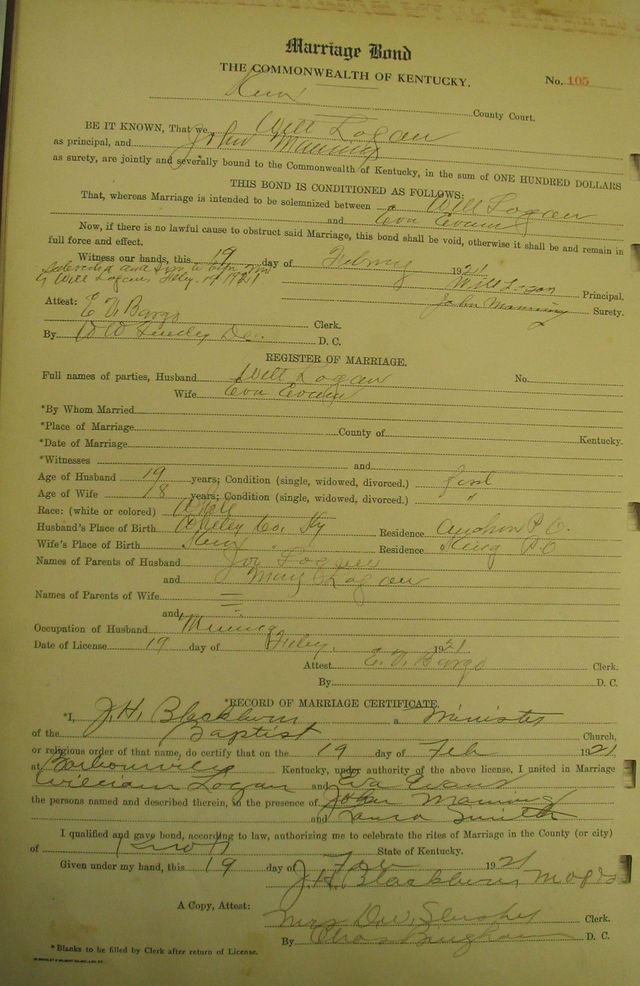 Marriage Bond
THE COMMONWEALTH OF KENTUCKY.
No. 105
County Court.
BE IT KNOWN, That we Will Logan
as principal, and John Manning
as surety, are jointly and severally bound to the Commonwealth of Kentucky, in the sum of ONE HUNDRED DOLLARS
THIS BOND IS CONDITIONED AS FOLLOWS:
That, whereas Marriage is intended to be solemnized between Will Logan
and Eva Evans
Now, if there is no lawful cause to obstruct said Marriage, this bond shall be void, otherwise it shall be and remain in
full force and effect.
Witness our hands, this 19 day of 1921
Will Logan Principal.
by Will Logan 1921
John Manning Surety.
Attest: E. V. Bargo Clerk.
By D. C.
REGISTER OF MARRIAGE.
Full names of parties, Husband Will Logan No.
Wife Eva Evans
*By Whom Married
*Place of Marriage County of Kentucky.
*Date of Marriage
*Witnesses and
Age of Husband 19 years; Condition (single, widowed, divorced.) first
Age of Wife 18 years; Condition (single, widowed, divorced.) "
Race: (white or colored) White
Husband's Place of Birth Whitley Co. Ky Residence P.O.
Wife's Place of Birth Knox Residence P.O
Names of Parents of Husband Logan
and Mary Logan
Names of Parents of Wife
and
Occupation of Husband Mining
Date of License 19 day of Feby. 1921
Attest E. V. Bargo Clerk.
By D. C.
*RECORD OF MARRIAGE CERTIFICATE.
*I, J. H. Blackburn a Minister
of the Baptist Church,
or religious order of that name, do certify that on the 19 day of Feb 1921
at Barbourville Kentucky, under authority of the above license, I united in Marriage
William Logan and Eva Evans
the persons named and described therein, in the presence of John Manning
and Smith
I qualified and gave bond, according to law, authorizing me to celebrate the rites of Marriage in the County (or city)
of Knox State of Kentucky.
Given under my hand, this 19 day of Feb 1921
J. H. Blackburn
A Copy, Attest:
Mrs Clerk.
By Bingham D. C.
*Blanks to be filled by Clerk after return of License.